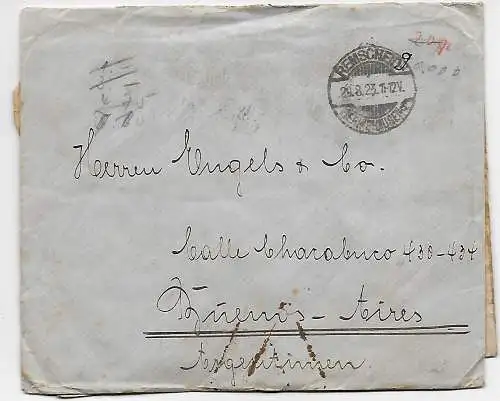 REMSCHEID
29.8.23.11-12V.
Herren Engels & Co.
Calle Chacabuco 430-434
Buenos-Aires
Argentinien